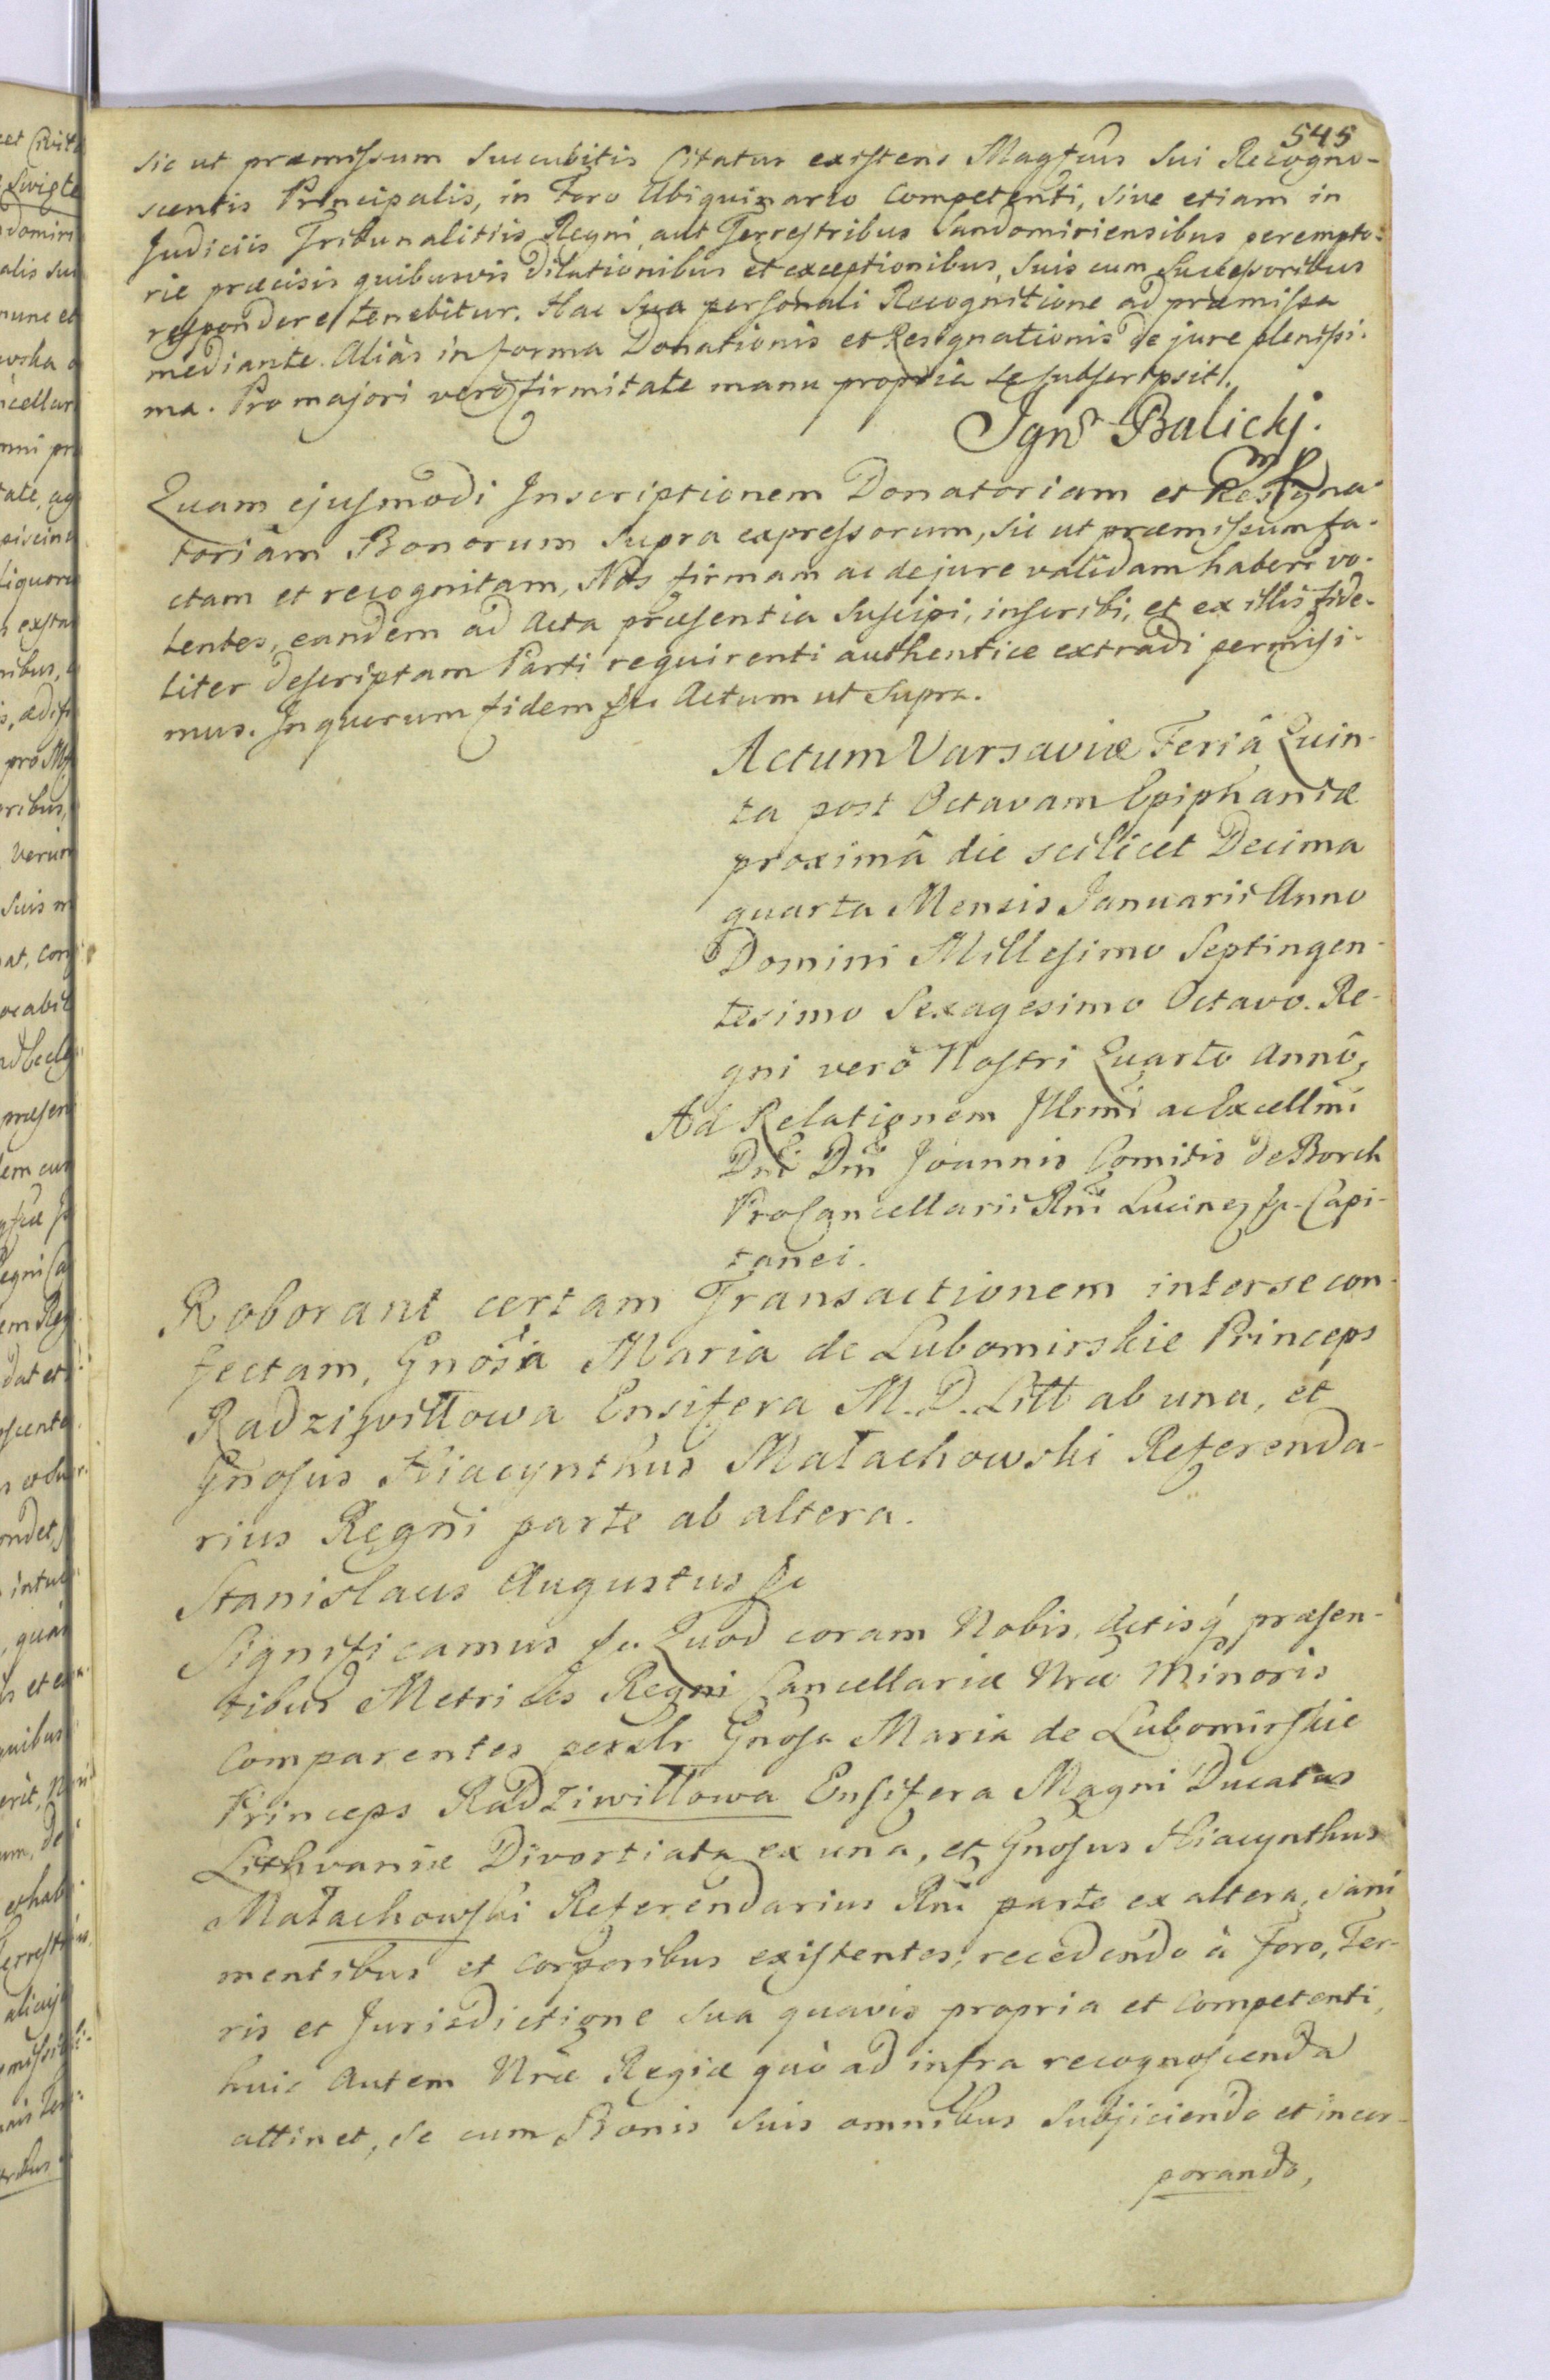 545
sic ut præmissum succubitis Citatus existens Magfcus sui Recogno-
scentis Principalis, in Foro Ubiquinario Competenti, sive etiam in
Judiciis Tribunalitiis Regni, aut Terrestribus Sandomiriensibus perempto-
rie præcisis quibusvis dilationibus et exceptionibus, suis cum Successoribus
respondere tenebitur. Hac sua personali Recognitione ad præmissa
mediante. Aliàs in forma Donationis et Resignationis de jure plenissi-
ma. Pro majori verò firmitate manu propria se subscripsit.
Ignr Balickj.
mp
Quam ejusmodi Inscriptionem Donatoriam et Resigna-
toriam Bonorum supra expressorum, sic ut præmissum fa-
ctam et recognitam, Nos firmam ac de jure validam habere vo-
lentes, eandem ad Acta præsentia suscipi, inscribi, et ex illis fide-
liter descriptam Parti requirenti authentice extradi permisi-
mus. In quorum fidem &c Actum ut supra.
Actum Varsaviæ Feriâ Quin-
ta post Octavam Epiphaniæ
proximâ die scilicet Decima
quarta Mensis Januarii Anno
Domini Millesimo Septingen-
tesimo Sexagesimo Octavo. Re-
gni verò Nostri Quarto Annô,
Ad Relationem Illrmi ac Excellmi
Dni Dni Joannis Comitis de Borch
ProCancellarii Rni Lucinen &c. Capi-
tanei.
Roborant certam Transactionem inter se con-
fectam, Gnosa Maria de Lubomirskie Princeps
Radziwiłłowa Ensifera M. D. Litt ab una, et
Gnosus Hiacynthus Małachowski Referenda-
rius Regni parte ab altera.
Stanislaus Augustus &c
Significamus &c. Quod coram Nobis, Actisq́ præsen-
tibus Metrices Regni Cancellariæ Nræ Minoris
Comparentes persolr Gnosa Maria de Lubomirskie
Princeps Radziwiłłowa Ensifera Magni Ducatus
Lithvaniæ Divortiata ex una, et Gnosus Hiacynthus
Małachowski Referendarius Rni parte ex altera, sani
mentibus et corporibus existentes, recedendo à foro, Ter-
ris et Jurisdictione sua quavis propria et competenti,
huic autem Nræ Regiæ quò ad infra recognoscenda
attinet, se cum Bonis suis omnibus subjiciendo et incor-
porando,